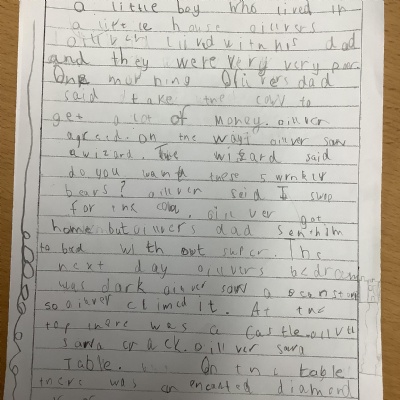 a little boy who lived in
a little house oillvers
lived with his dad
and they were very very poor.
One morning Olivers dad
said take the cow to
get a lot of money. oillver
agreed. on the way oillver saw
a wizard. The wizard said
do you want these 5 wrinkly
bears? oillver seid I swop
for the cow. oillver got
home but ollvers dad sent him
to bed with out super. The
next day oillvers bedroom
was dark oillver saw a
so oillver climed it. At the
top there was a Castle. oillver
saw a crack. oillver saw
Table. On the table
there was an encanted diamend